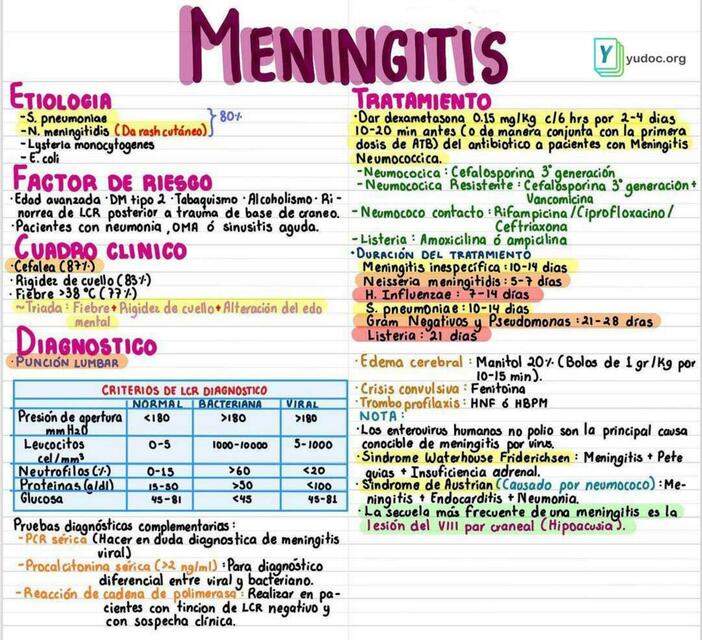 MENINGITIS
Y yudoc.org
ETIOLOGIA
-S. pneumoniae
-N. meningitidis (Da rash cutáneo) } 80%
-Lysteria monocytogenes
-E. coli
FACTOR DE RIESGO
·Edad avanzada ·DM tipo 2 ·Tabaquismo ·Alcoholismo ·Ri-
norrea de LCR posterior a trauma de base de craneo.
·Pacientes con neumonia, OMA ó sinusitis aguda.
CUADRO CLINICO
·Cefalea (87%)
·Rigidez de cuello (83%)
·Fiebre >38 °C (77%)
~Triada: Fiebre+Rigidez de cuello+Alteración del edo
mental
DIAGNOSTICO
·PUNCIÓN LUMBAR
CRITERIOS DE LCR DIAGNOSTICO
NORMAL BACTERIANA VIRAL
Presión de apertura mmH20 <180 >180 >180
Leucocitos cel/mm³ 0-5 1000-10000 5-1000
Neutrofilos (%) 0-15 >60 <20
Proteinas (g/dl) 15-50 >50 <100
Glucosa 45-81 <45 45-81
Pruebas diagnósticas complementarias:
-PCR sérica (Hacer en duda diagnostica de meningitis
viral)
-Procalcitonina sérica (>2 ng/ml): Para diagnóstico
diferencial entre viral y bacteriano.
-Reacción de cadena de polimerasa: Realizar en pa-
cientes con tincion de LCR negativo y
con sospecha clínica.
TRATAMIENTO
·Dar dexametasona 0.15 mg/kg c/6 hrs por 2-4 dias
10-20 min antes (o de manera conjunta con la primera
dosis de ATB) del antibiotico a pacientes con Meningitis
Neumococcica.
-Neumococica: Cefalosporina 3° generación
-Neumococica Resistente: Cefalosporina 3° generación+
Vancomicina
-Neumococo contacto: Rifampicina/Ciprofloxacino/
Ceftriaxona
-Listeria: Amoxicilina ó ampicilina
·DURACIÓN DEL TRATAMIENTO
Meningitis inespecífica: 10-14 dias
Neisseria meningitidis: 5-7 dias
H. Influenzae: 7-14 dias
S. pneumoniae: 10-14 dias
Gram Negativos y Pseudomonas: 21-28 dias
Listeria: 21 dias
·Edema cerebral: Manitol 20% (Bolos de 1 gr/Kg por
10-15 min).
·Crisis convulsiva: Fenitoina
·Tromboprofilaxis: HNF ó HBPM
NOTA:
·Los enterovirus humanos no polio son la principal causa
conocible de meningitis por virus.
·Sindrome Waterhouse Friderichsen: Meningitis + Pete
quias + Insuficiencia adrenal.
·Sindrome de Austrian (Causado por neumococo): Me-
ningitis + Endocarditis + Neumonia.
·La secuela más frecuente de una meningitis es la
lesión del VIII par craneal (Hipoacusia).